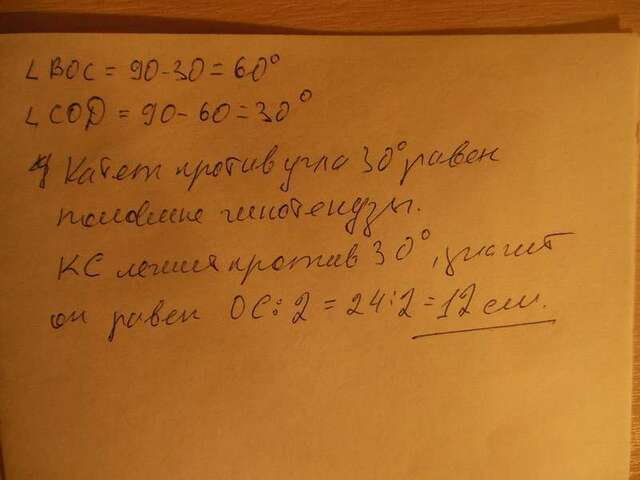 ∠BOC = 90-30 = 60°
∠COD = 90-60 = 30°
Катет против угла 30° равен
половине гипотенузы.
КС лежит против 30°, значит
он равен ОС:2 = 24:2 = 12 см.